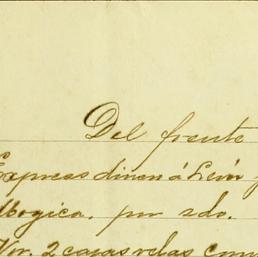 Del frente
Expreso dinen á Leon
Mogica. por sdo.
Vor. 2 cajas velas